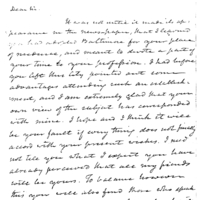 Dear Sir.
It was not until it made its ap-
pearance in the newspaper, that I learned
you had adopted Baltimore for your place
of residence, and meant to devote a part of
your time to your profession. I had before
you left this city pointed out some
advantages attending such an establish-
ment, and I am extremely glad that your
own view of the subject has corresponded
with mine. I hope and I think it will
be your fault if every thing does not fully
accord with your present wishes. I need
not tell you what I expect you have
already perceived that all my friends
will be yours. To balance however
this you will also find those who